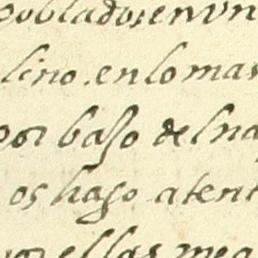 poblados en vn
lino. en lo mas
por baso de lna
os hago atent
por ellas mea